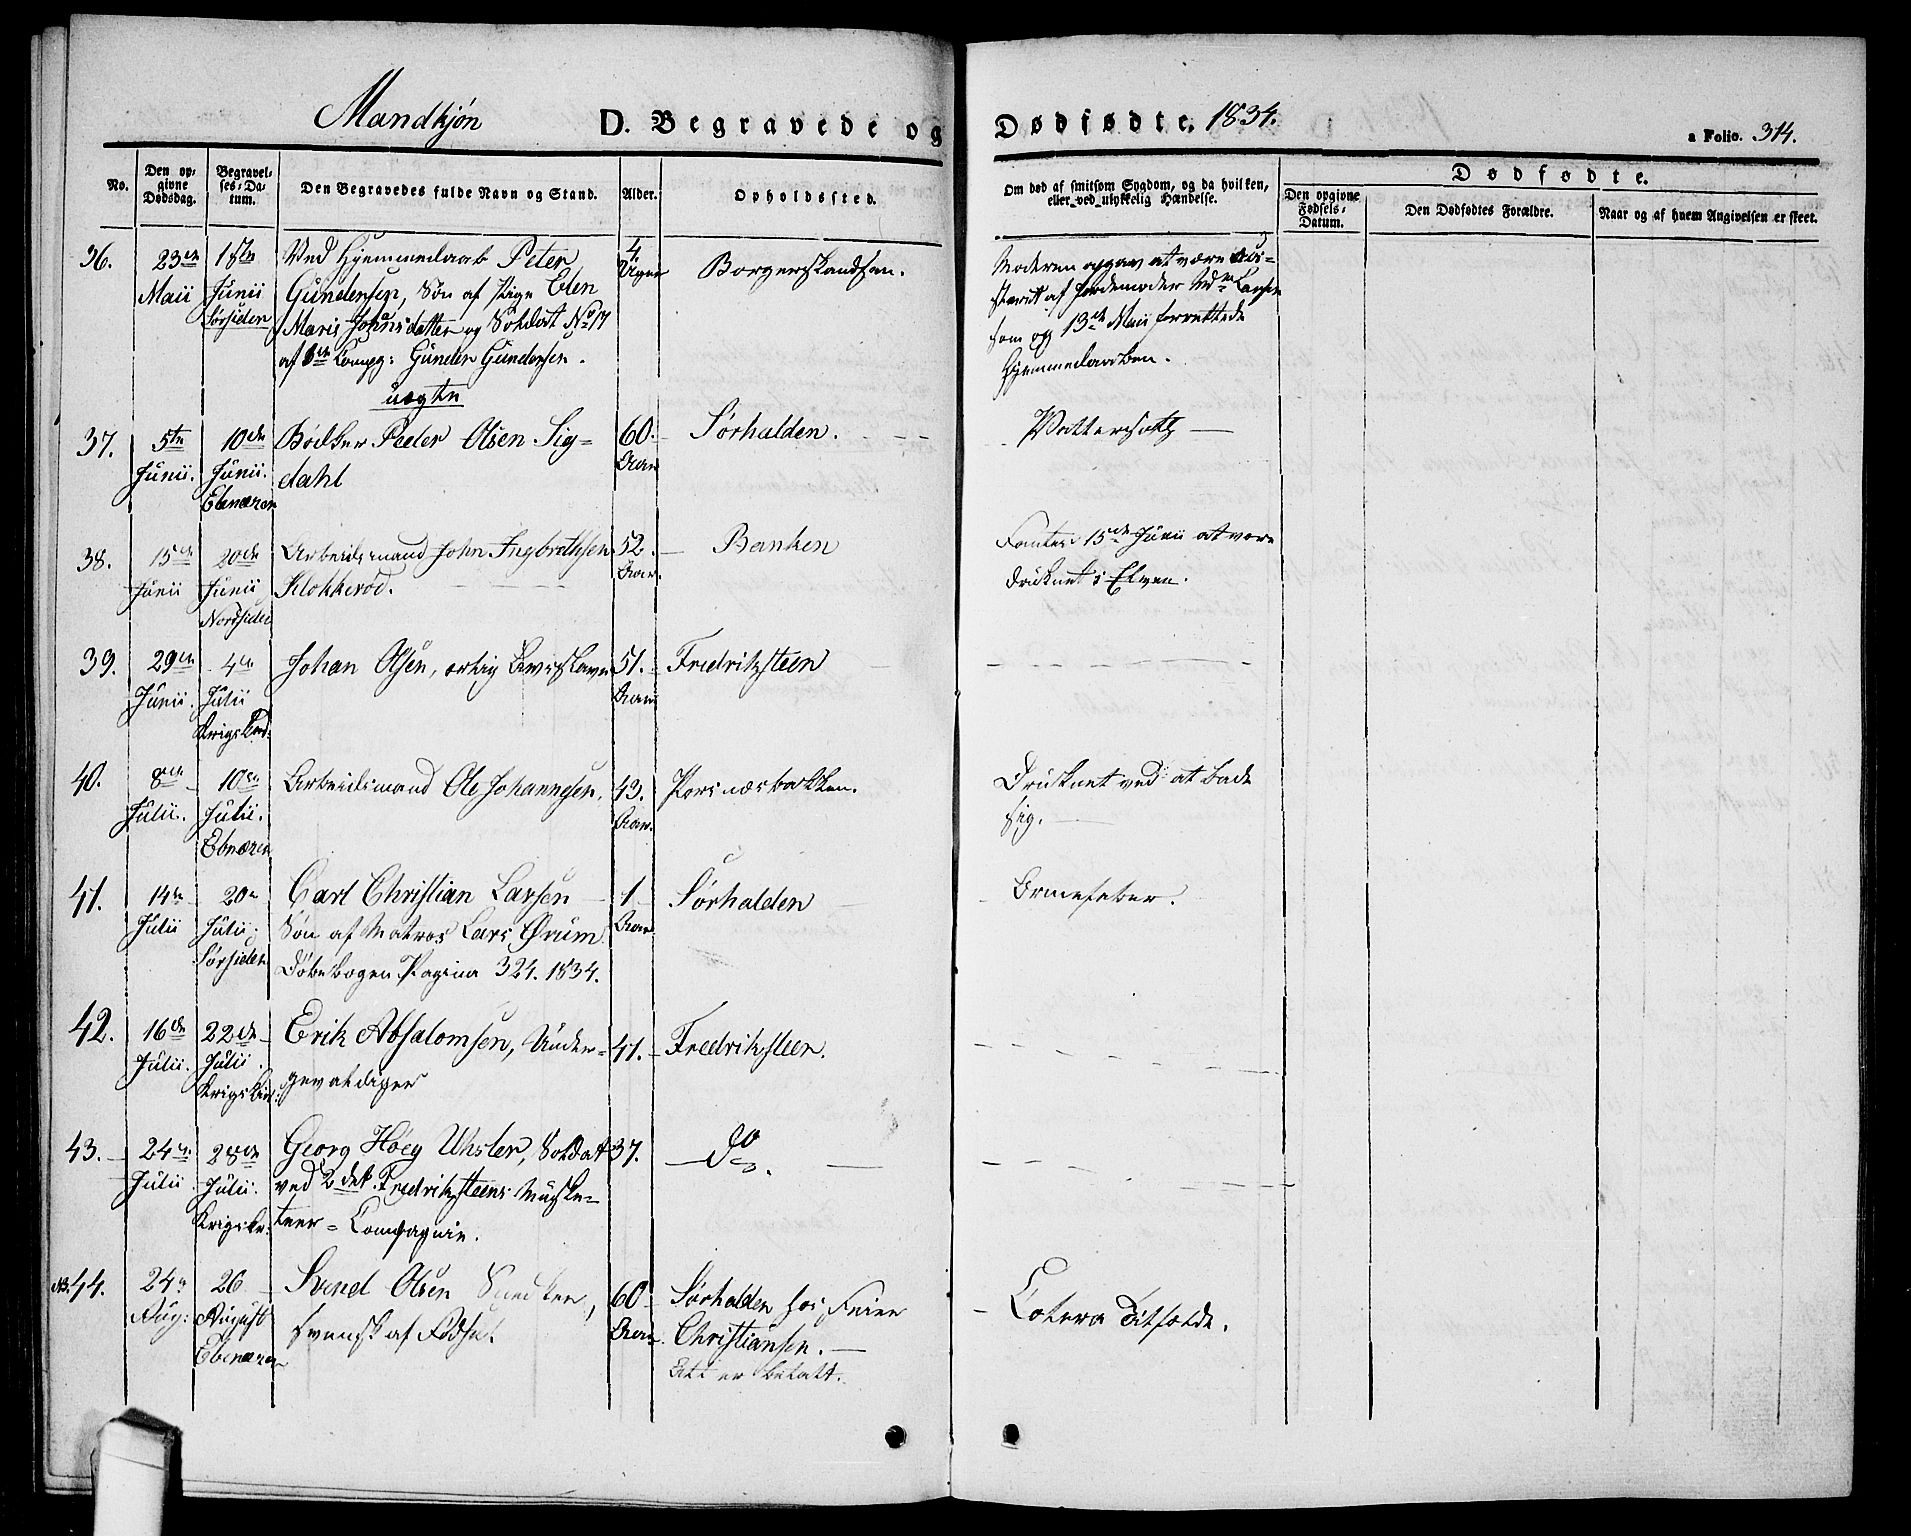 Mandkjøn
D. Begravede og Dødfødte. 1834.
a Folio. 314.
No.
Den opgivne Dødsdag.
Begravelses-Datum.
Den Begravedes fulde Navn og Stand.
Alder.
Opholdssted.
Om død af smitsom Sygdom, og da hvilken, eller ved ulykkelig Hændelse.
Dødfødte.
Den opgivne Fødsels-Datum.
Den Dødfødtes Forældre.
Naar og af hvem Angivelsen er skeet.
36.
23de Maii
1ste Junii Sørsiden
Ved Hjemmedaab Peter
Gundersen, Søn af Pige Elen
Marie Johnsdatter og Soldat No 17
af Comp: Gunder Gundersen.
uægte
4. Uger
Borgerskandsen.
Moderen opgav at være
af Jordemoder Md Larsen
som og 13de Maii forrettede
Hjemmedaaben.
37.
5te Junii.
10de Junii. Ebenæzer
Bødker Peder Olsen Sig=
dahl
60. Aar
Sørhalden.
Vattersott
38.
15de Junii
20de Junii Nordsiden
Arbeidsmand John Ingbrethsen
Klokkerød.
52. Aar.
Banken
Funden 15de Junii at være
druknet i Elven.
39.
29de Junii.
4de Julii Krigskirk:
Johan Olsen, Slave
51. Aar
Fredrikssteen
40.
8de Julii.
10de Julii. Ebnæzer
Arbeidsmand Ole Johannesen.
43. Aar.
Porsnæsbakken.
Druknet ved at bade
sig.
41.
14de Julii
20de Julii. Sørsiden
Carl Christian Larsen
Søn af Matros Lars Ørum.
Døbebogen Pagina 324. 1834.
1 Aar
Sørhalden
Ormefeber.
42.
16de Julii.
22de Julii. Krigskirk:
Erik Absalomsen, Under=
gevaldiger
41.
Fredrikssteen.
43.
24de Julii.
28de Julii. Krigsk:
Georg Høeg Uhsler, Soldat
ved 2det Fredrikssteens Muske=
teer=Compagnie.
37.
do.
NB. 44.
24de Aug:
26 August Ebenæzer
Svend Olsen Snedker,
svensk af Fødsel
60 Aar
Sørhalden hos Feier
Christiansen.
Alt er betalt.
Colera tilfælde.